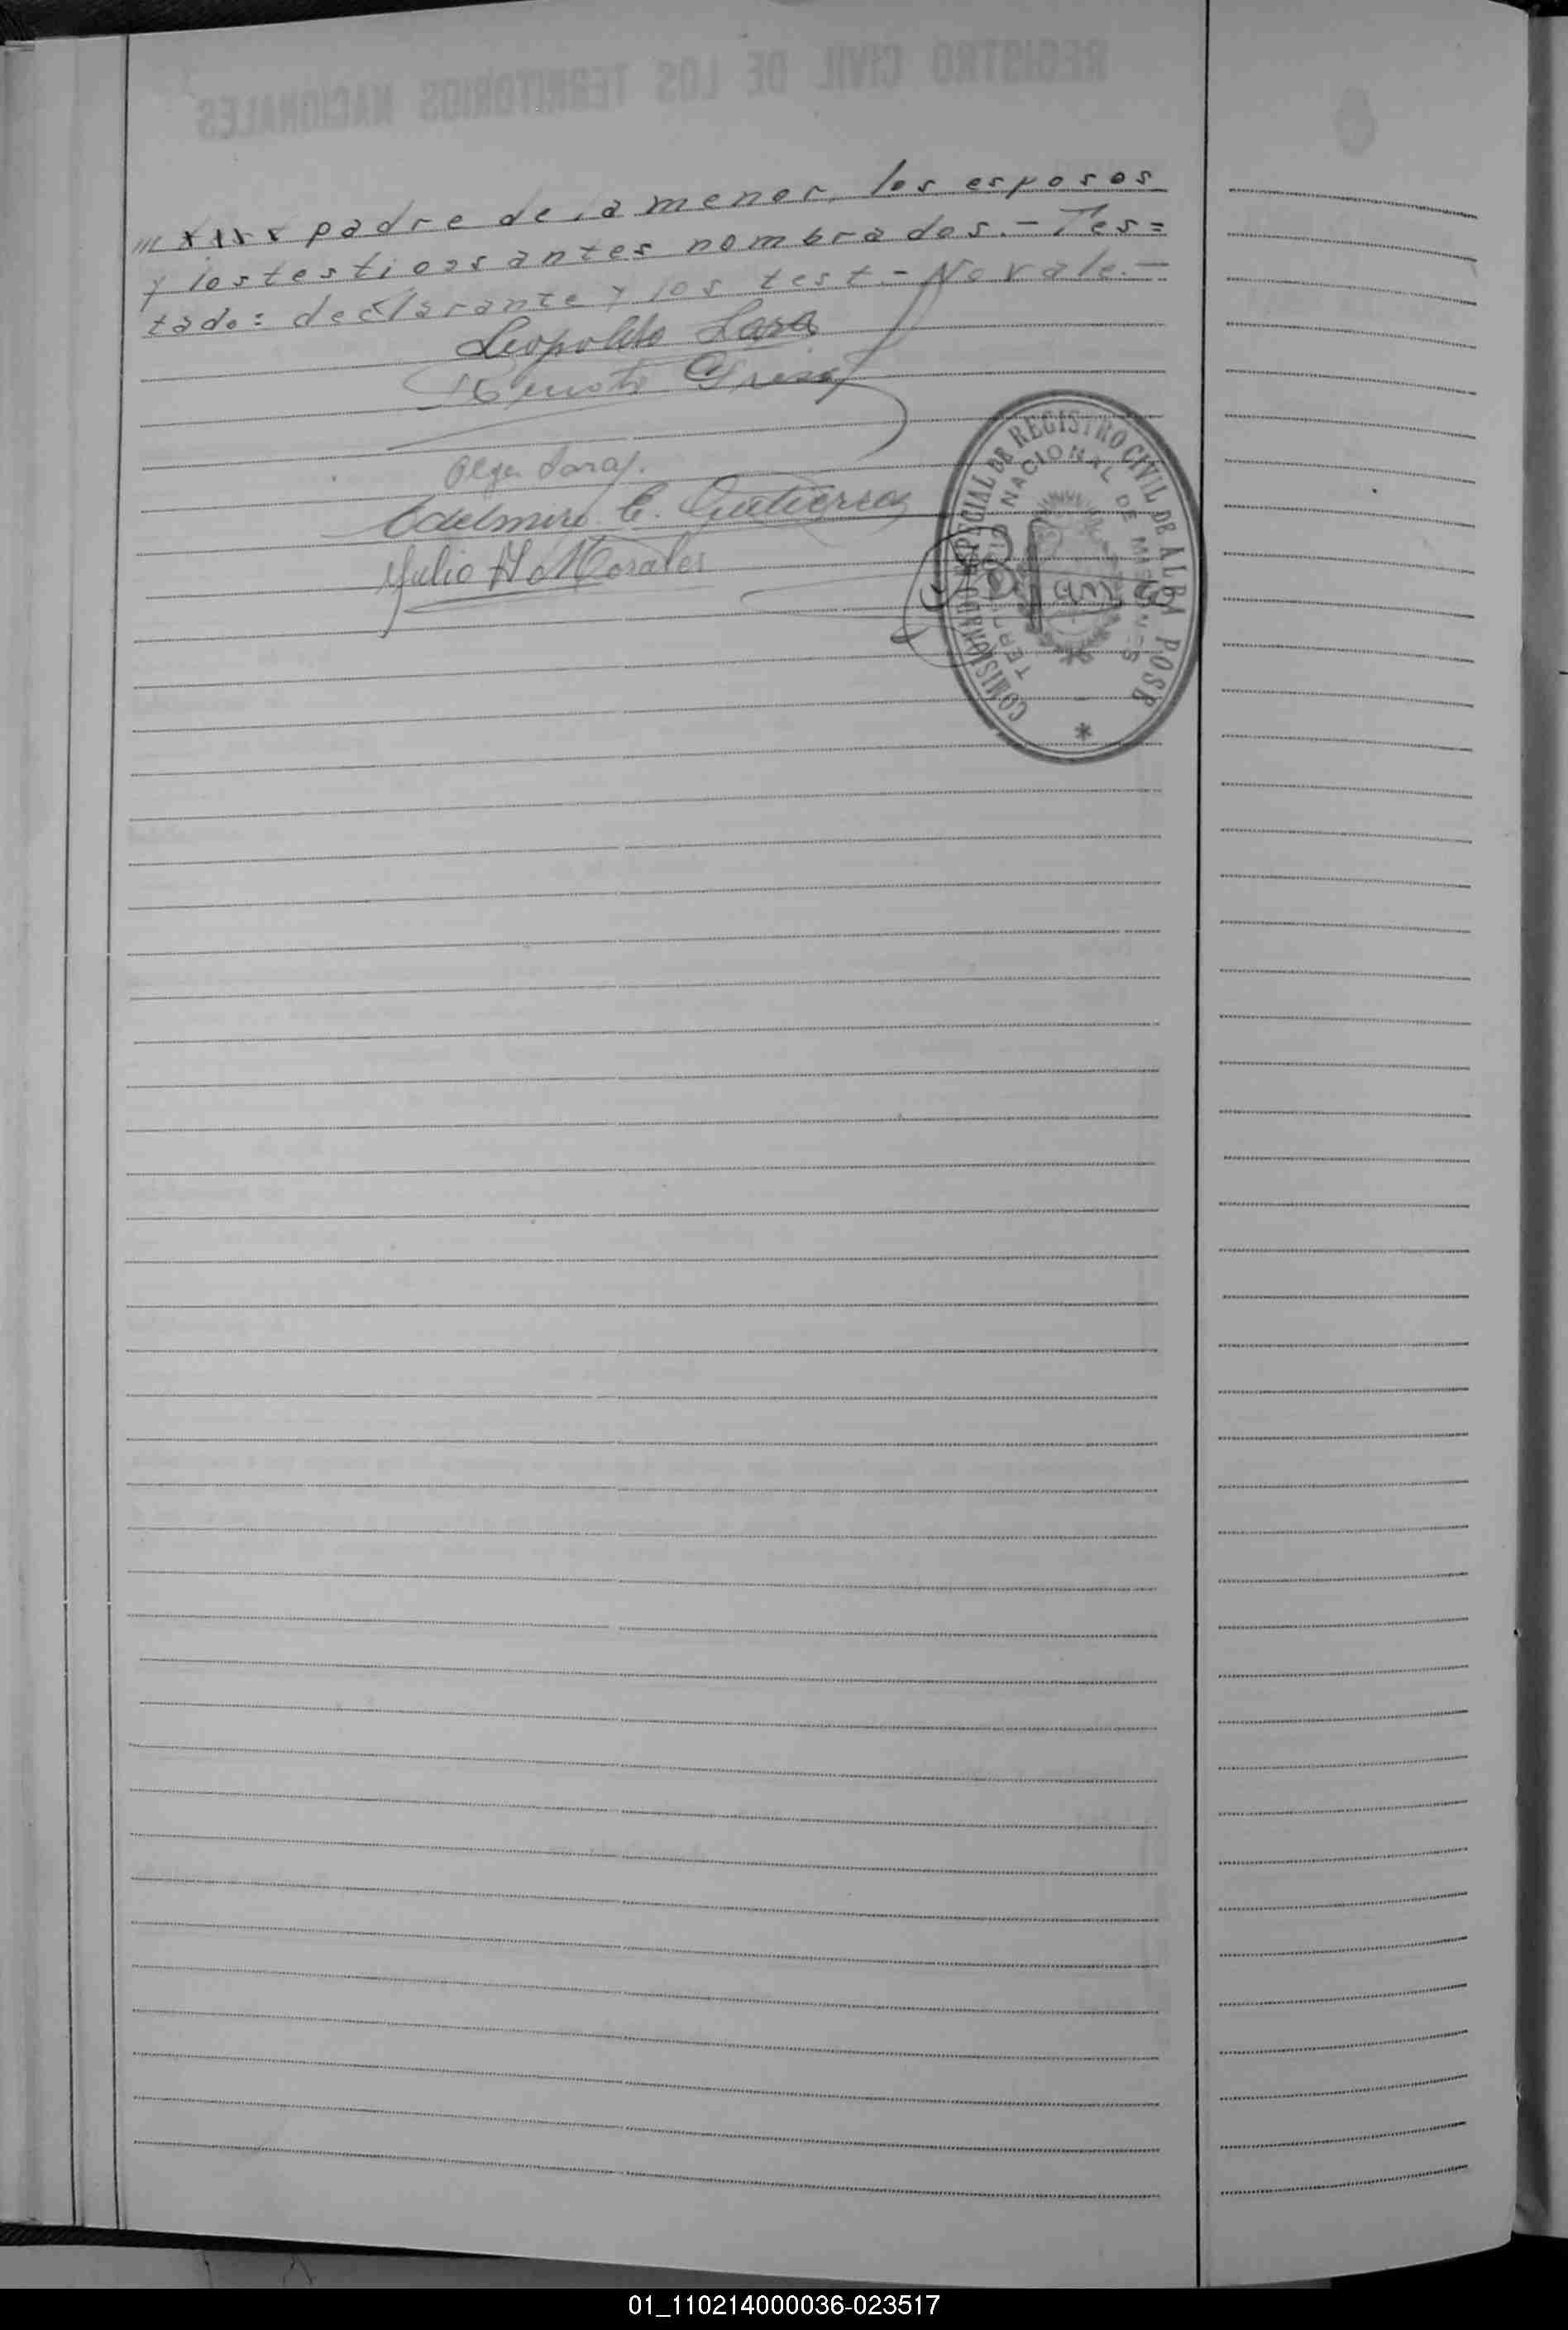 REGISTRO CIVIL DE LOS TERRITORIOS NACIONALES
padre de la menor, los esposos
y los testigos antes nombrados.- Tes=
tado: declarante y los test - No vale.-
Leopoldo Lara
Olga Lara
Edelmiro C. Gutierrez
Julio H. Morales
COMISIONADO ESPECIAL DE REGISTRO CIVIL DE ALBA POSE
TERRITORIO NACIONAL DE MISIONES
01_110214000036-023517